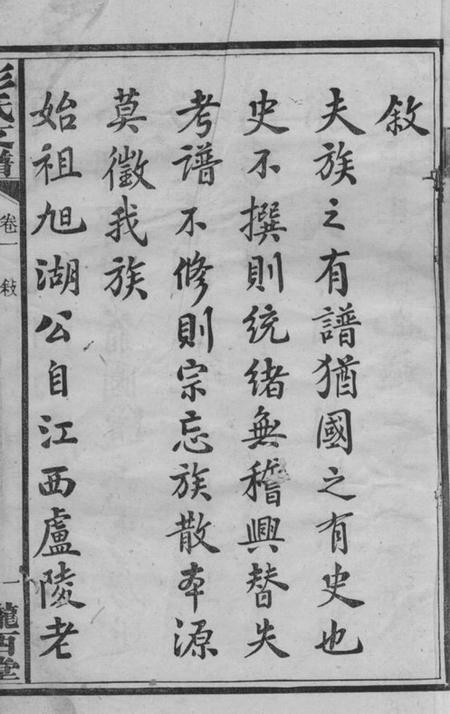 敘
夫族之有譜猶國之有史也
史不撰則統緒無稽興替失
考譜不修則宗忘族散本源
莫徵我族
始祖旭湖公自江西盧陵老
彭氏支譜
卷一
敘
一
隴西堂